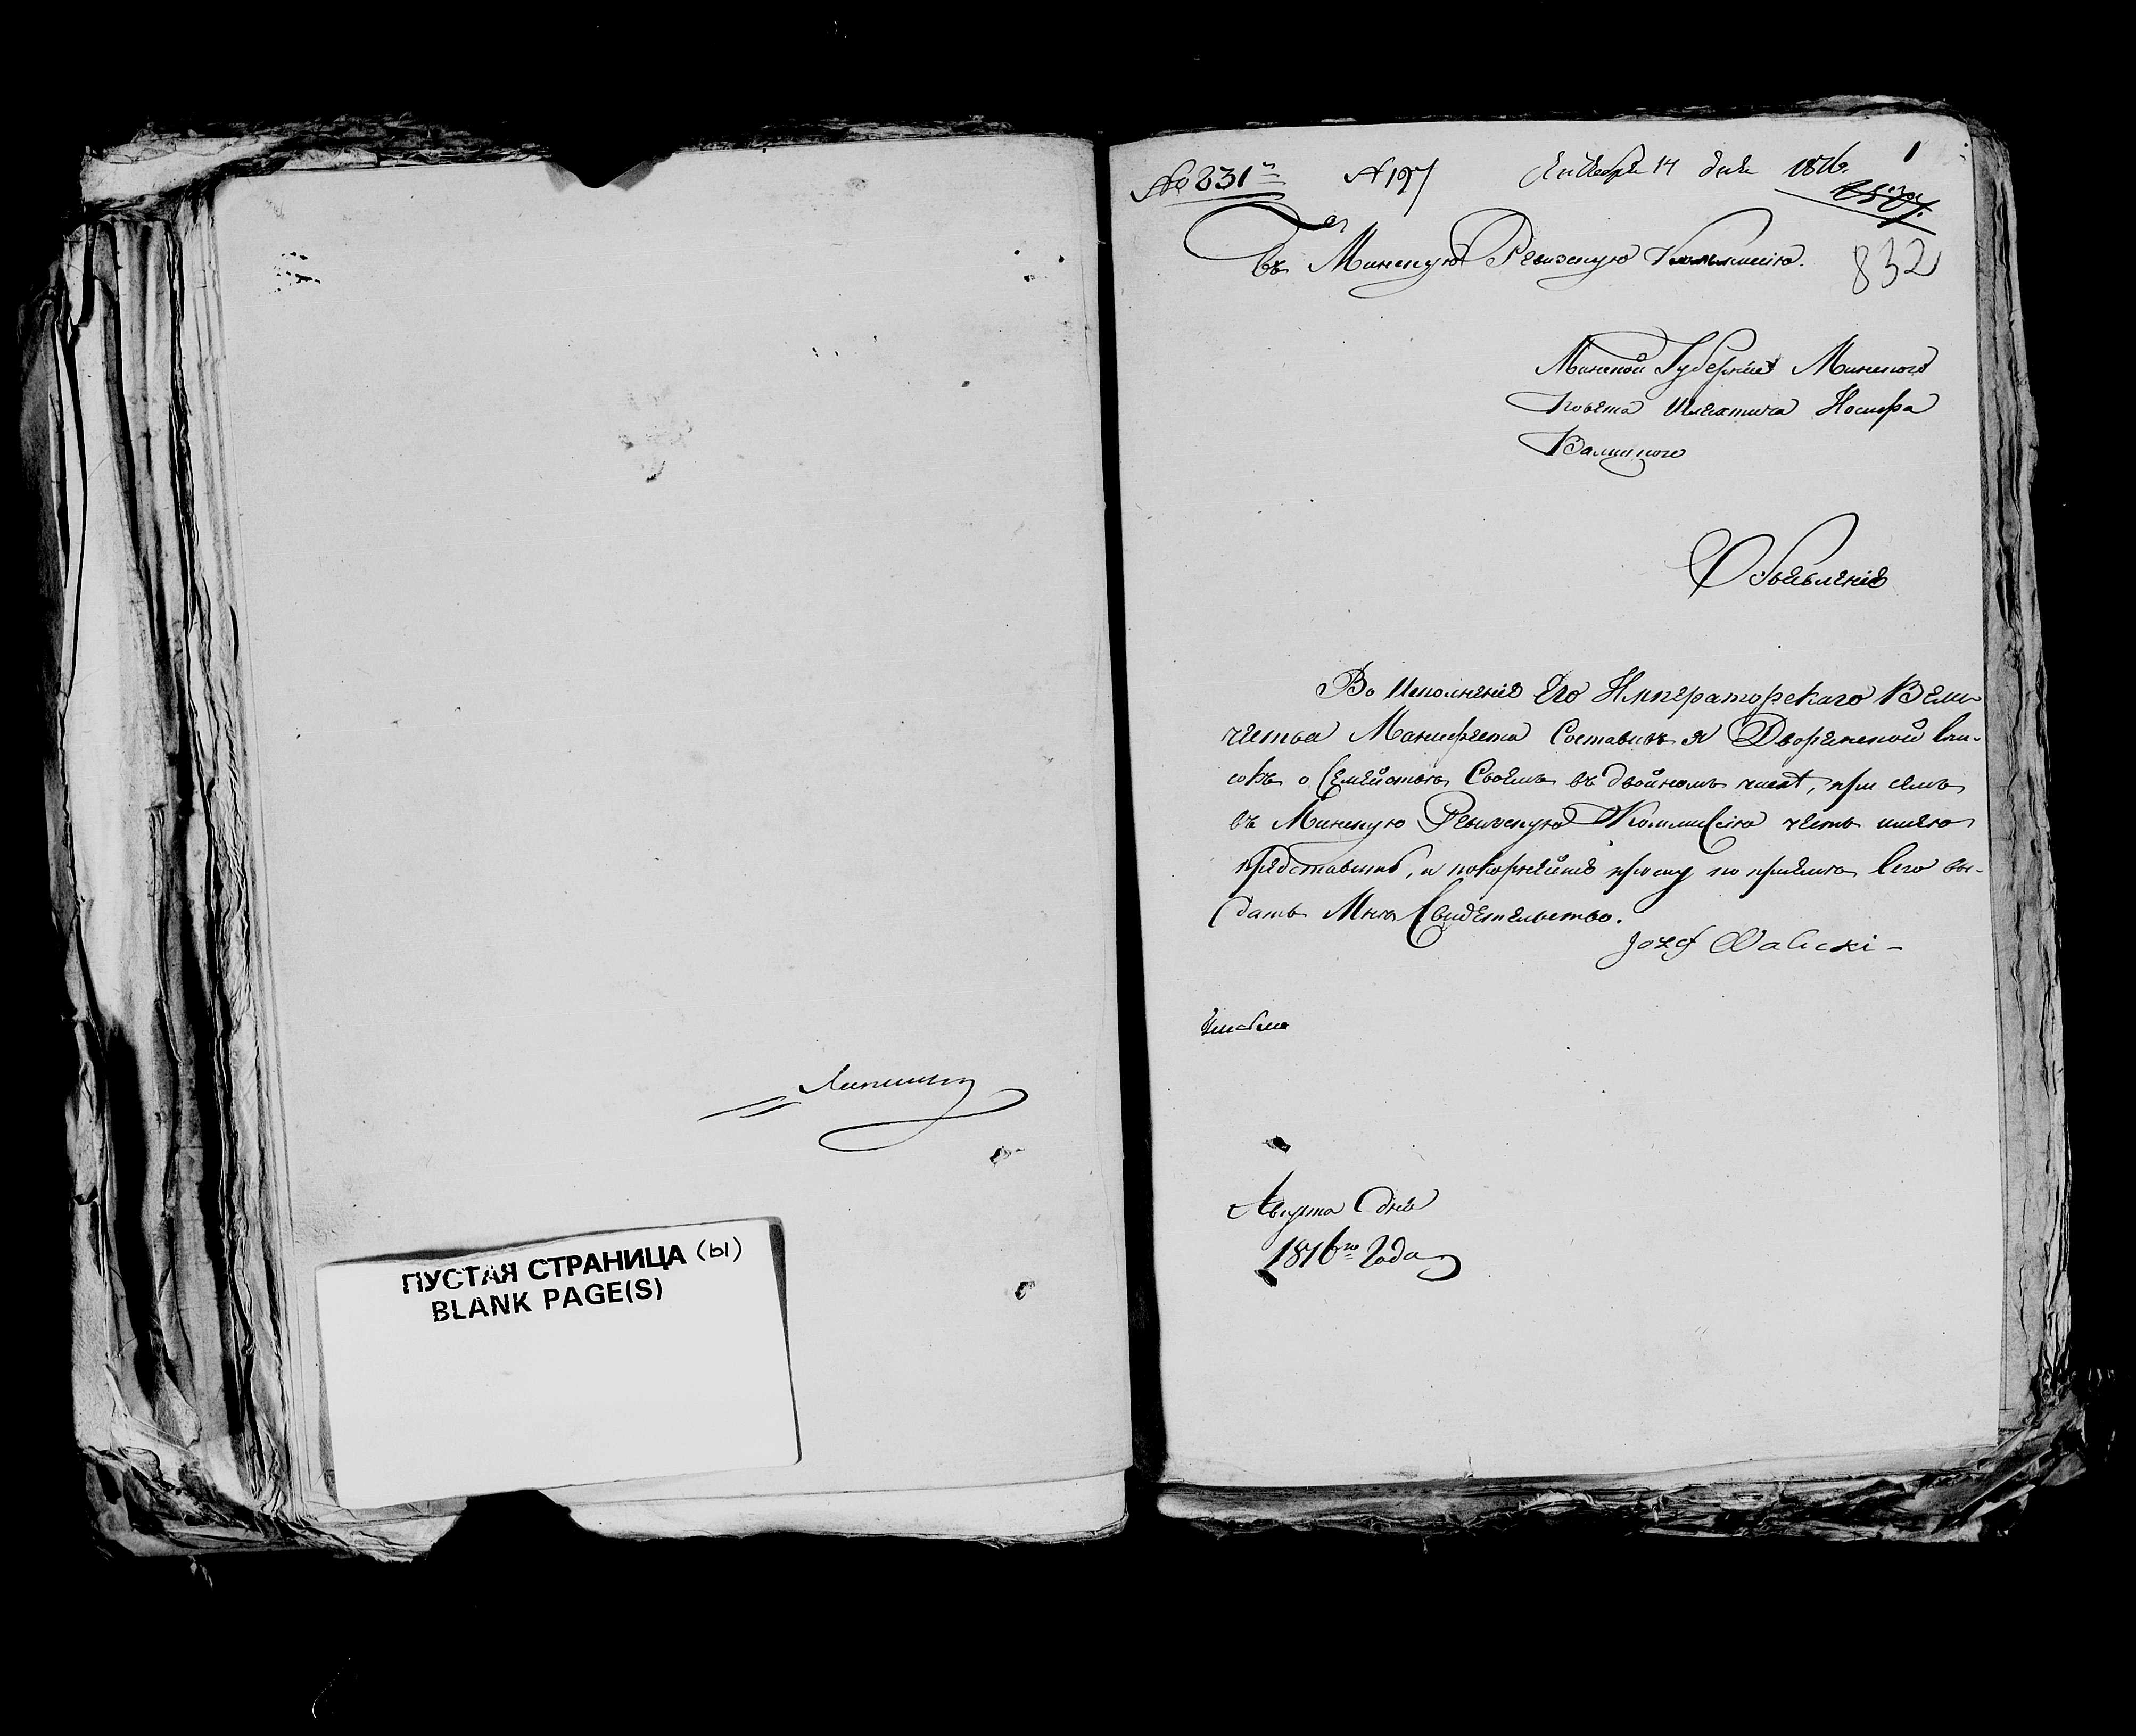 Лапицкій
ПУСТАЯ СТРАНИЦА (ы)
BLANK PAGE(S)
№ 831й № 197 14 дня 1816. 1
832
Въ Минскую Ревизскую Коммисію.
Минской Губерніи Минского
Повѣта Шляхтича Иосифа
Валицкого
Объявленіе
Во Исполненіе Его Императорскаго Вели-
чества Манифеста Составивъ я Дворянской Спи-
сокъ о Семействѣ Своемъ въ двойномъ числѣ, при семъ
въ Минскую Ревизскую Коммисію честь имею
представить, и покорнейше прошу по приемѣ Сего вы-
дать Мнѣ Свидѣтельство.
Jozef Walicki -
Августа дня
1816го Года